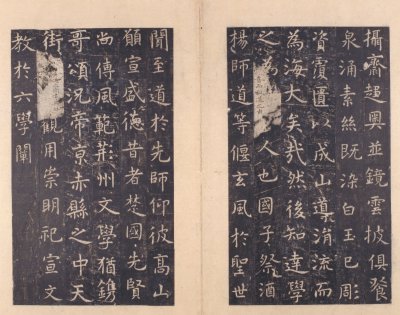 攝齊趍奧並鏡雲披俱飡
泉涌素絲既染白玉已彫
資覆匱以成山導涓流而
為海大矣哉然後知達學
之為人也國子祭酒
楊師道等偃玄風於聖世
聞至道於先師仰彼高山
願宣盛德昔者楚國先賢
尚傳風範荊州文學猶鐫
哥頌況帝京赤縣之中天
街觀用崇明祀宣文
教於六學闡